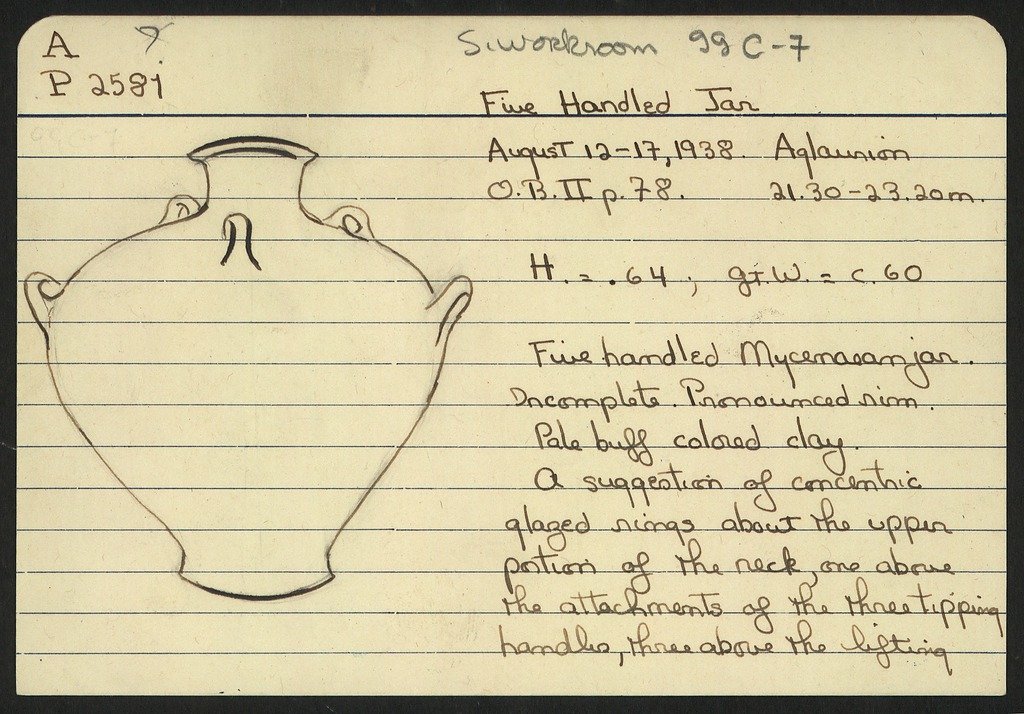 A
P 2581
S. workroom 99 C-7
Five Handled Jar
August 12-17, 1938. Aglaurion
O.B. II p. 78. 21.30-23.20m.
H. = .64; gt. W. = c. 60
Five handled Mycenaean jar.
Incomplete. Pronounced rim.
Pale buff colored clay.
A suggestion of concentric
glazed rings about the upper
portion of the neck, one above
the attachments of the three tipping
handles, three above the lifting